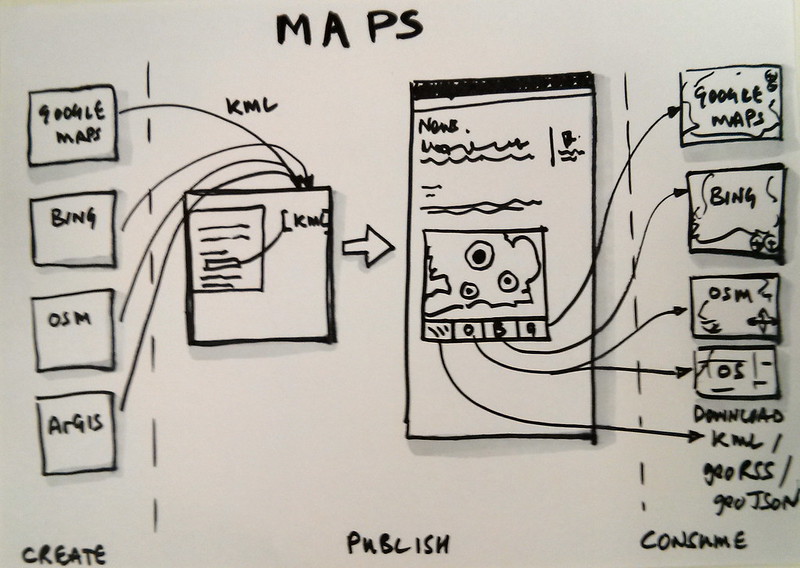 MAPS
GOOGLE
MAPS
KML
BING
OSM
ArGIS
[KML]
News.
O B G
GOOGLE
MAPS
BING
OSM
OS
DOWNLOAD
KML /
geoRSS /
geoJSON
CREATE
PUBLISH
CONSUME